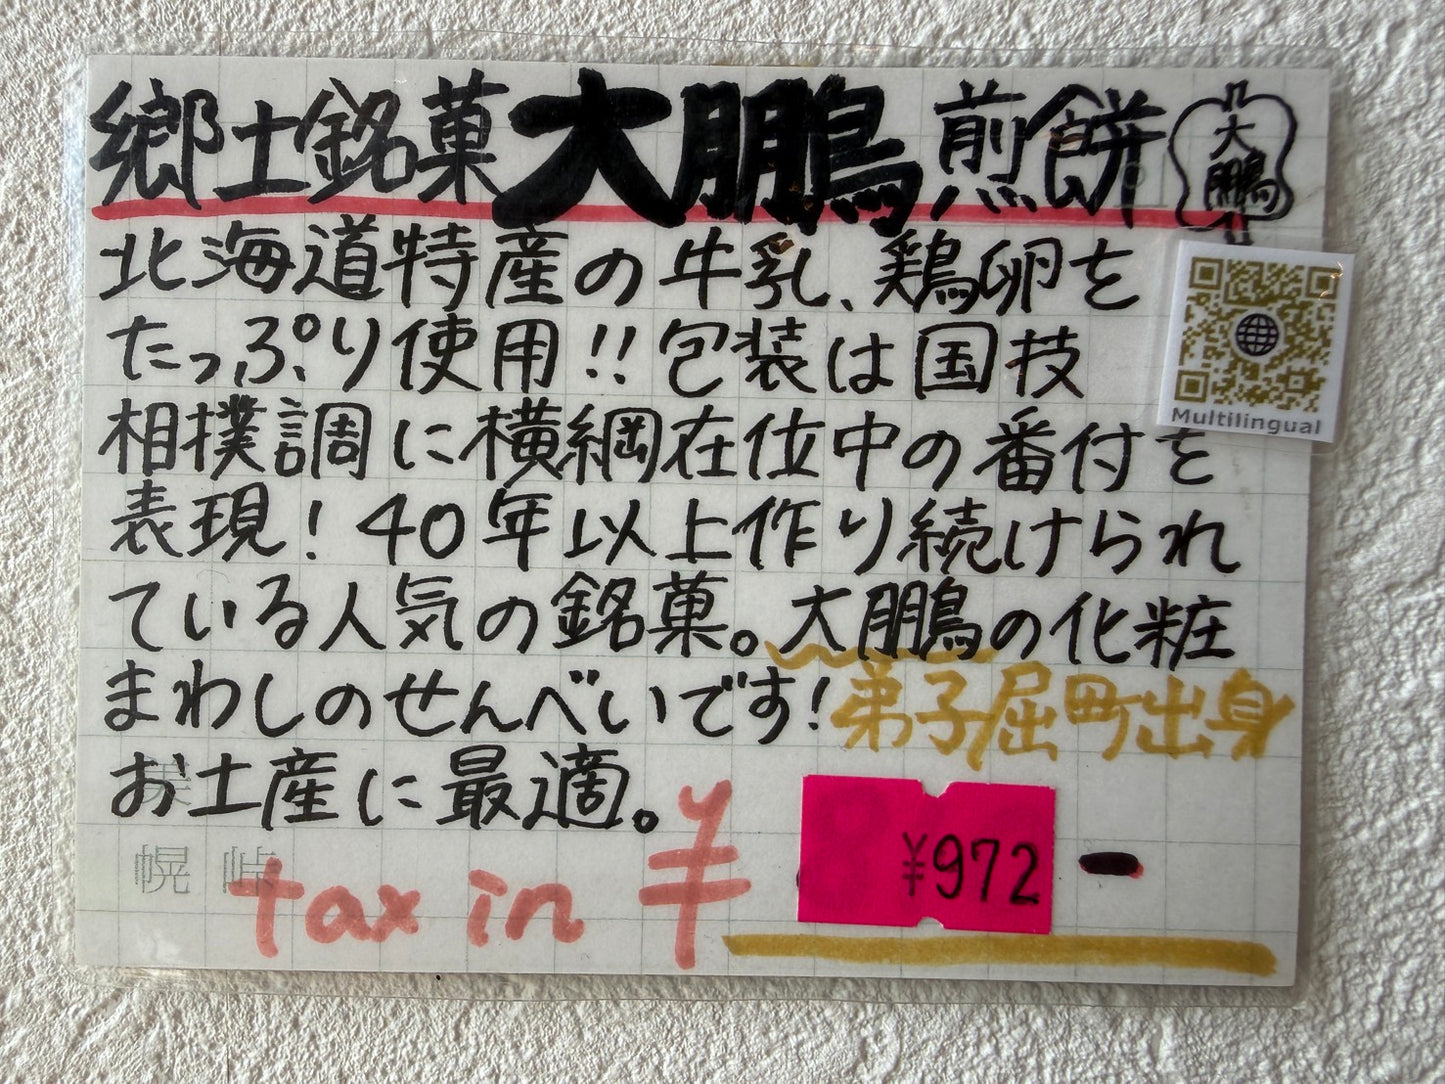 郷土銘菓大鵬煎餅
大鵬
北海道特産の牛乳、鶏卵を
たっぷり使用!!包装は国技
相撲調に横綱在位中の番付を
表現!40年以上作り続けられ
ている人気の銘菓。大鵬の化粧
まわしのせんべいです!
弟子屈町出身
お土産に最適。
tax in ¥ ¥972 -
Multilingual
幌 峠